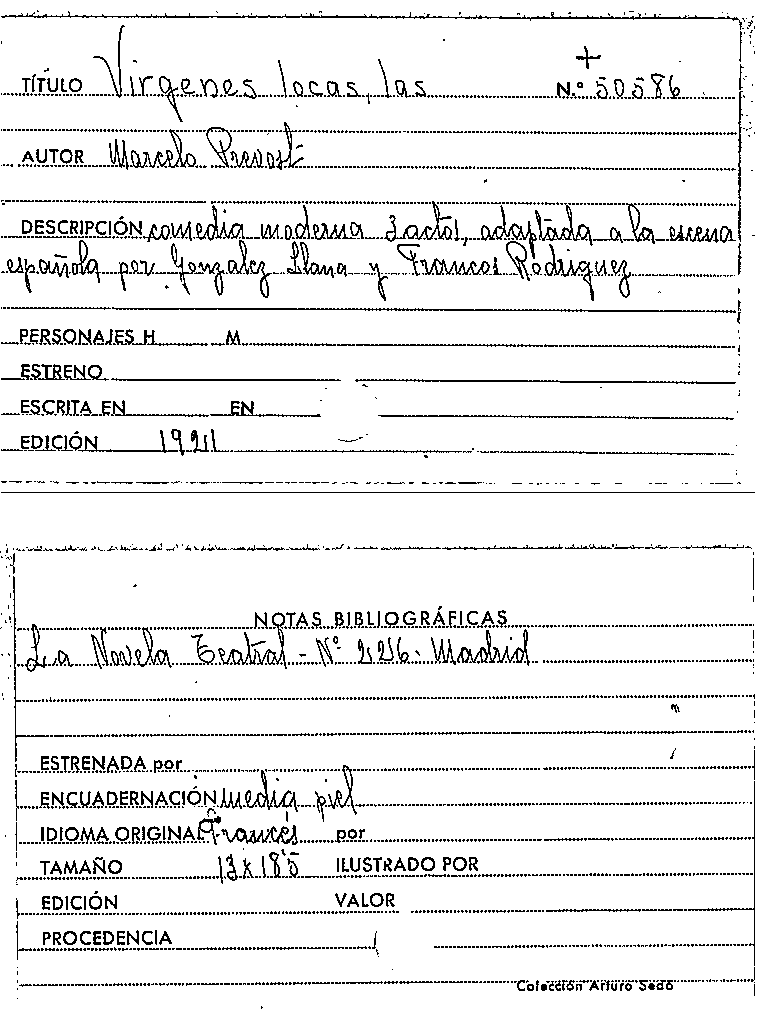 +
TÍTULO Vírgenes locas, las N.º 50586
AUTOR Marcelo Prevost
DESCRIPCIÓN comedia moderna 3 actos, adaptada a la escena
española por Gonzalez Llana y Francos Rodriguez
PERSONAJES H M
ESTRENO
ESCRITA EN EN
EDICIÓN 1921
NOTAS BIBLIOGRÁFICAS
La Novela Teatral - Nº 226 - Madrid
ESTRENADA por
ENCUADERNACIÓN media piel
IDIOMA ORIGINAL Francés por
TAMAÑO 13 x 18'5 ILUSTRADO POR
EDICIÓN VALOR
PROCEDENCIA
Colección Arturo Sedó